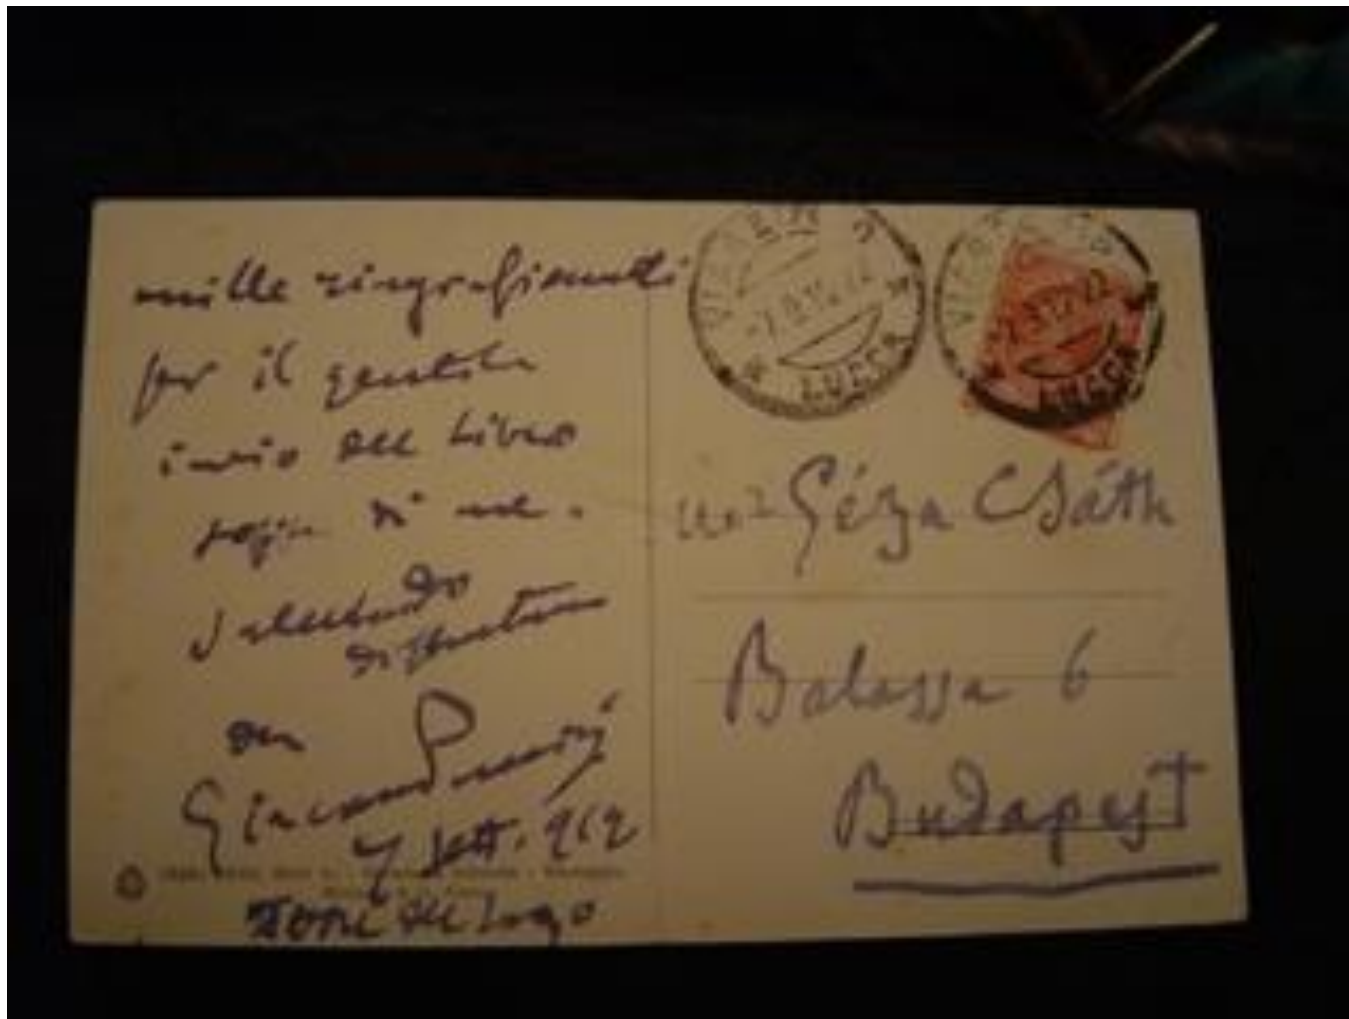 mille ringraziamenti
per il gentile
invio del libro
sopra di me.
Salutando
distintam
Giacomo Puccini
7 Sett. 912
Torre del Lago
VIAREGGIO
LUCCA
VIAREGGIO
LUCCA
Géza Csáth
Balassa 6
Budapest